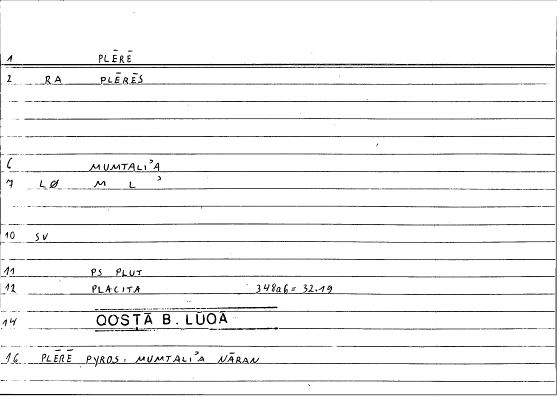 1 PLĒRĒ
2 RA PLĒRĒS
6 MUMTALIʾA
7 LØ M L ʾ
10 SV
11 PS PLUT
12 PLACITA 348a6 = 32.19
14 QOSṬĀ B. LŪQĀ
16 PLĒRĒ PYROS: MUMTALIʾA NĀRAN